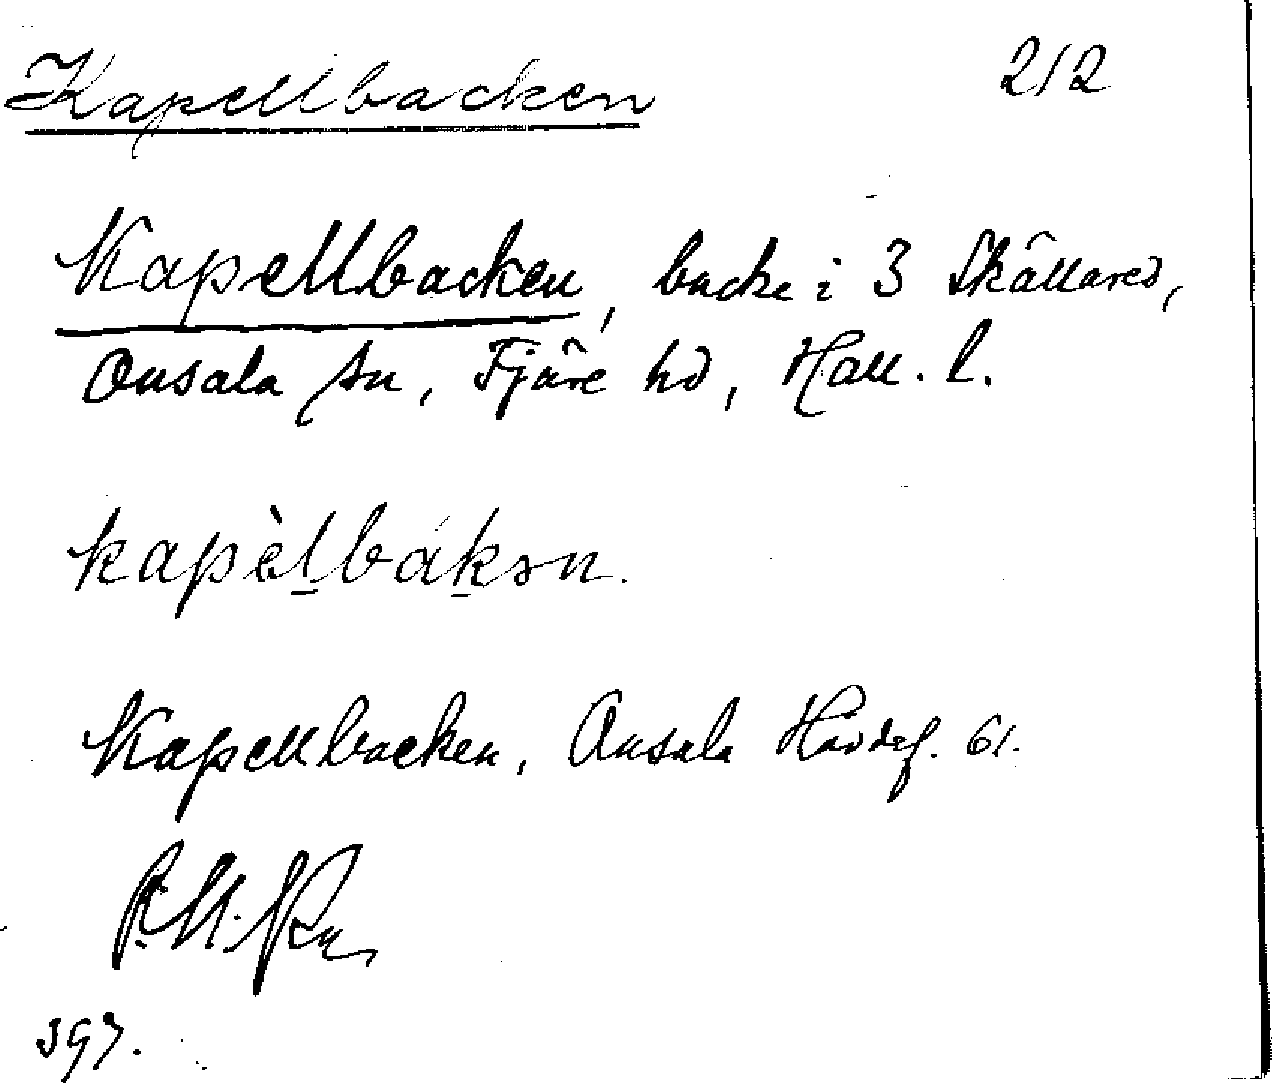 Kapellbacken 212
Kapellbacken, backe i 3 Skållared,
Onsala sn, Fjäre hd, Hall. l.
kapèl̲bák̲ən.
Kapellbacken, Onsala Hävdef. 61.
397.